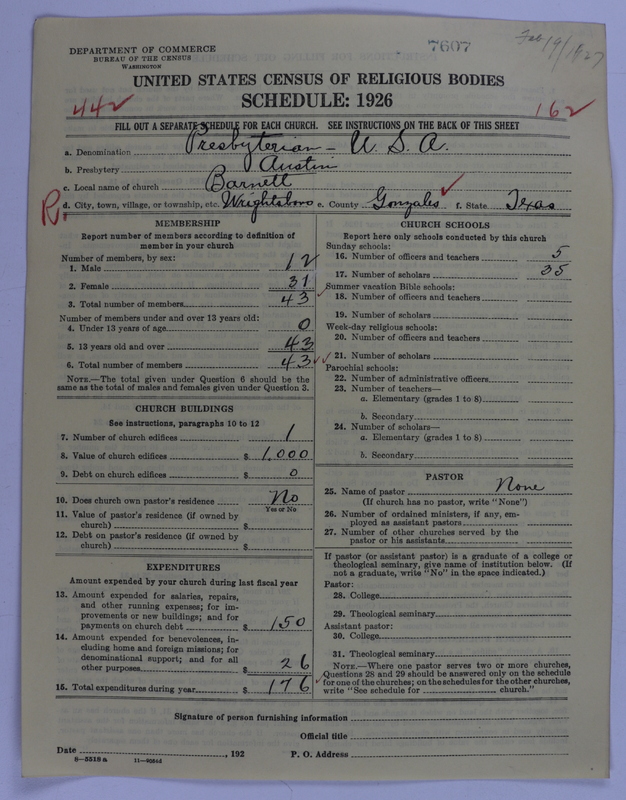 DEPARTMENT OF COMMERCE
BUREAU OF THE CENSUS
WASHINGTON
7607
Feb 19/1927
UNITED STATES CENSUS OF RELIGIOUS BODIES
SCHEDULE: 1926
442
162
FILL OUT A SEPARATE SCHEDULE FOR EACH CHURCH. SEE INSTRUCTIONS ON THE BACK OF THIS SHEET
a. Denomination Presbyterian - U. S. A.
b. Presbytery Austin
c. Local name of church Barnett
R. d. City, town, village, or township, etc. Wrightsboro e. County Gonzales f. State Texas
MEMBERSHIP
Report number of members according to definition of
member in your church
Number of members, by sex:
1. Male 12
2. Female 31
3. Total number of members 43
Number of members under and over 13 years old:
4. Under 13 years of age 0
5. 13 years old and over 43
6. Total number of members 43
NOTE.—The total given under Question 6 should be the
same as the total of males and females given under Question 3.
CHURCH BUILDINGS
See instructions, paragraphs 10 to 12
7. Number of church edifices 1
8. Value of church edifices $ 1,000
9. Debt on church edifices $ 0
10. Does church own pastor's residence No
Yes or No
11. Value of pastor's residence (if owned by
church) $
12. Debt on pastor's residence (if owned by
church) $
EXPENDITURES
Amount expended by your church during last fiscal year
13. Amount expended for salaries, repairs,
and other running expenses; for im-
provements or new buildings; and for
payments on church debt $ 150
14. Amount expended for benevolences, in-
cluding home and foreign missions; for
denominational support; and for all
other purposes $ 26
15. Total expenditures during year $ 176
CHURCH SCHOOLS
Report here only schools conducted by this church
Sunday schools:
16. Number of officers and teachers 5
17. Number of scholars 35
Summer vacation Bible schools:
18. Number of officers and teachers
19. Number of scholars
Week-day religious schools:
20. Number of officers and teachers
21. Number of scholars
Parochial schools:
22. Number of administrative officers
23. Number of teachers—
a. Elementary (grades 1 to 8)
b. Secondary
24. Number of scholars—
a. Elementary (grades 1 to 8)
b. Secondary
PASTOR
25. Name of pastor None
(If church has no pastor, write "None")
26. Number of ordained ministers, if any, em-
ployed as assistant pastors
27. Number of other churches served by the
pastor or his assistants
If pastor (or assistant pastor) is a graduate of a college or
theological seminary, give name of institution below. (If
not a graduate, write "No" in the space indicated.)
Pastor:
28. College
29. Theological seminary
Assistant pastor:
30. College
31. Theological seminary
NOTE.—Where one pastor serves two or more churches,
Questions 28 and 29 should be answered only on the schedule
for one of the churches; on the schedules for the other churches,
write "See schedule for church."
Signature of person furnishing information
Official title
Date , 192 P. O. Address
8—5518 a